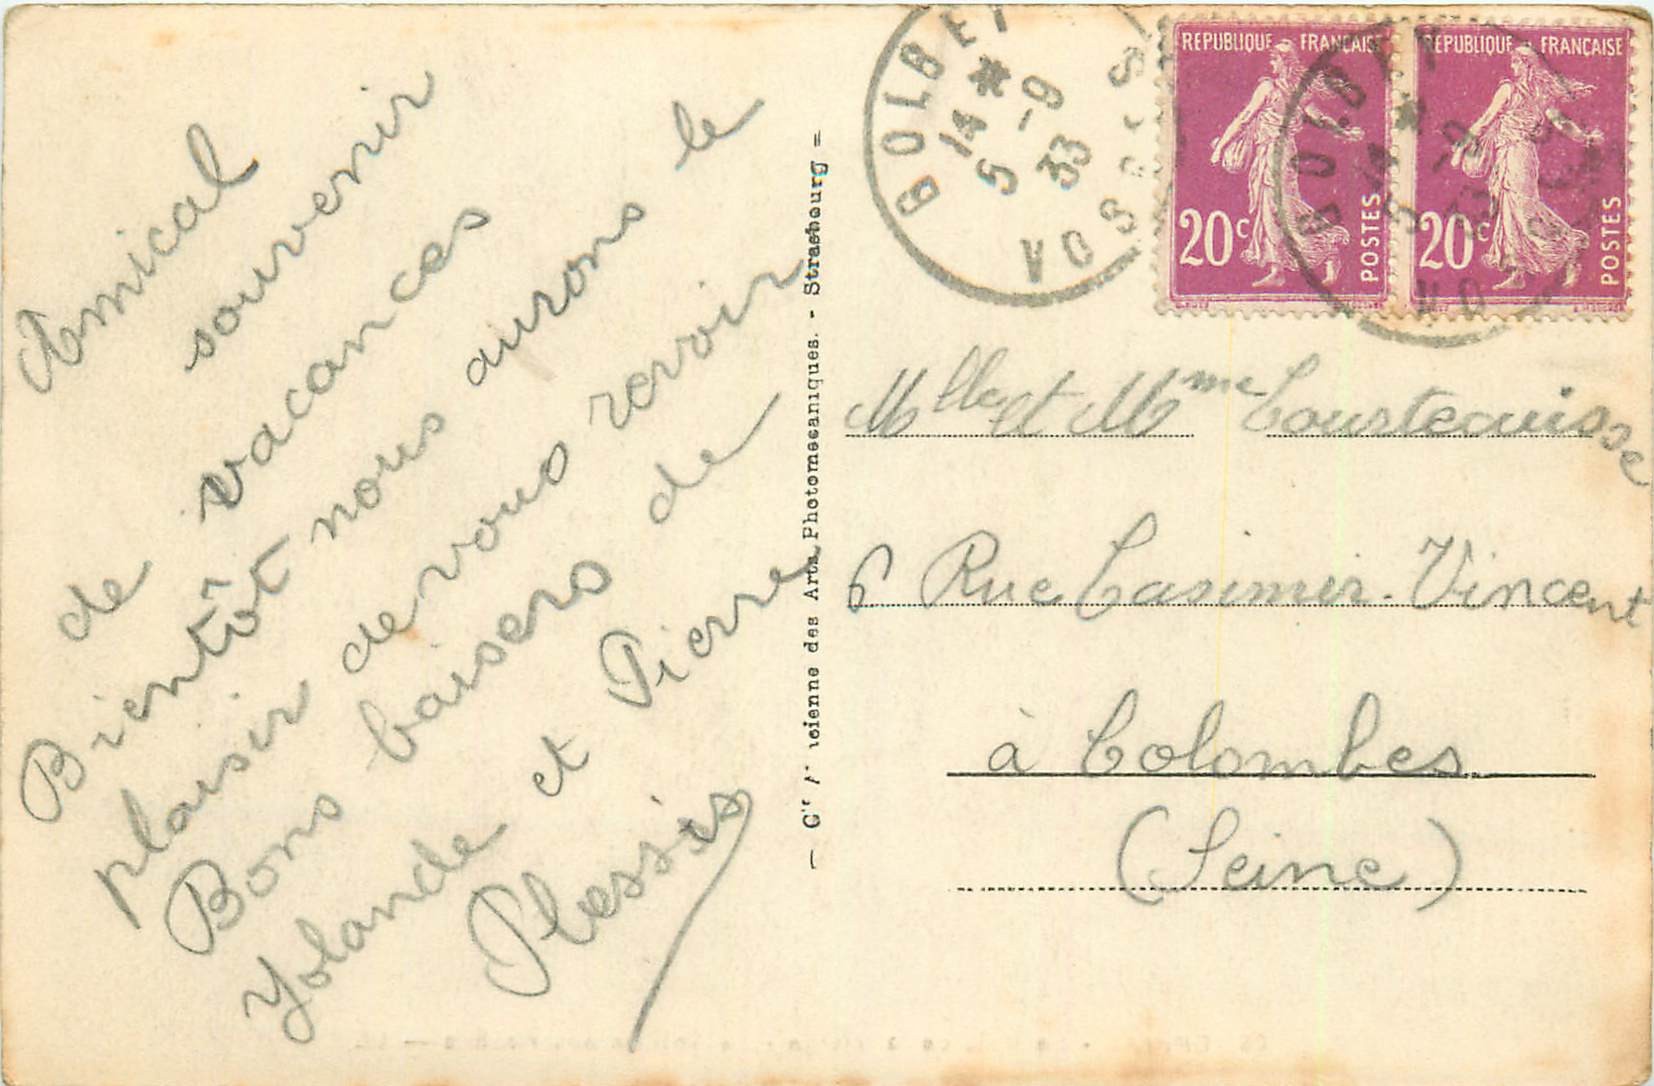 Amical
souvenir
de vacances
Bientôt nous aurons le
plaisir de vous revoir
Bons baisers de
Yolande et Pierre
Plessis
Cie Alsacienne des Arts Photomecaniques. - Strasbourg
BOLBEY
14 *
5 - 9
33
VOSGES
REPUBLIQUE FRANÇAISE
20c
POSTES
REPUBLIQUE FRANÇAISE
20c
POSTES
Mlle et Mme Courtecuisse
6 Rue Casimir-Vincent
à Colombes
(Seine)